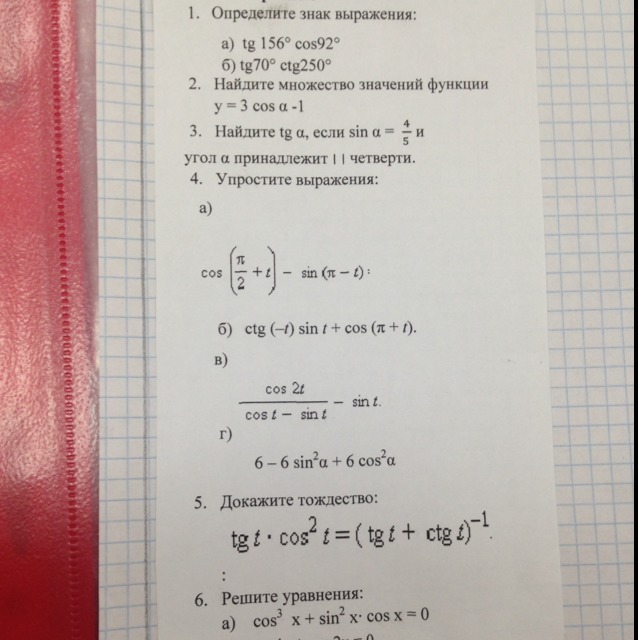 1. Определите знак выражения:
а) tg 156° cos92°
б) tg70° ctg250°
2. Найдите множество значений функции
y = 3 cos α -1
3. Найдите tg α, если sin α = 4/5 и
угол α принадлежит | | четверти.
4. Упростите выражения:
а)
cos (π/2 + t) − sin (π − t) :
б) ctg (−t) sin t + cos (π + t).
в)
cos 2t / (cos t − sin t) − sin t.
г)
6 – 6 sin²α + 6 cos²α
5. Докажите тождество:
tg t · cos² t = ( tg t + ctg t)⁻¹.
:
6. Решите уравнения:
а) cos³ x + sin² x· cos x = 0